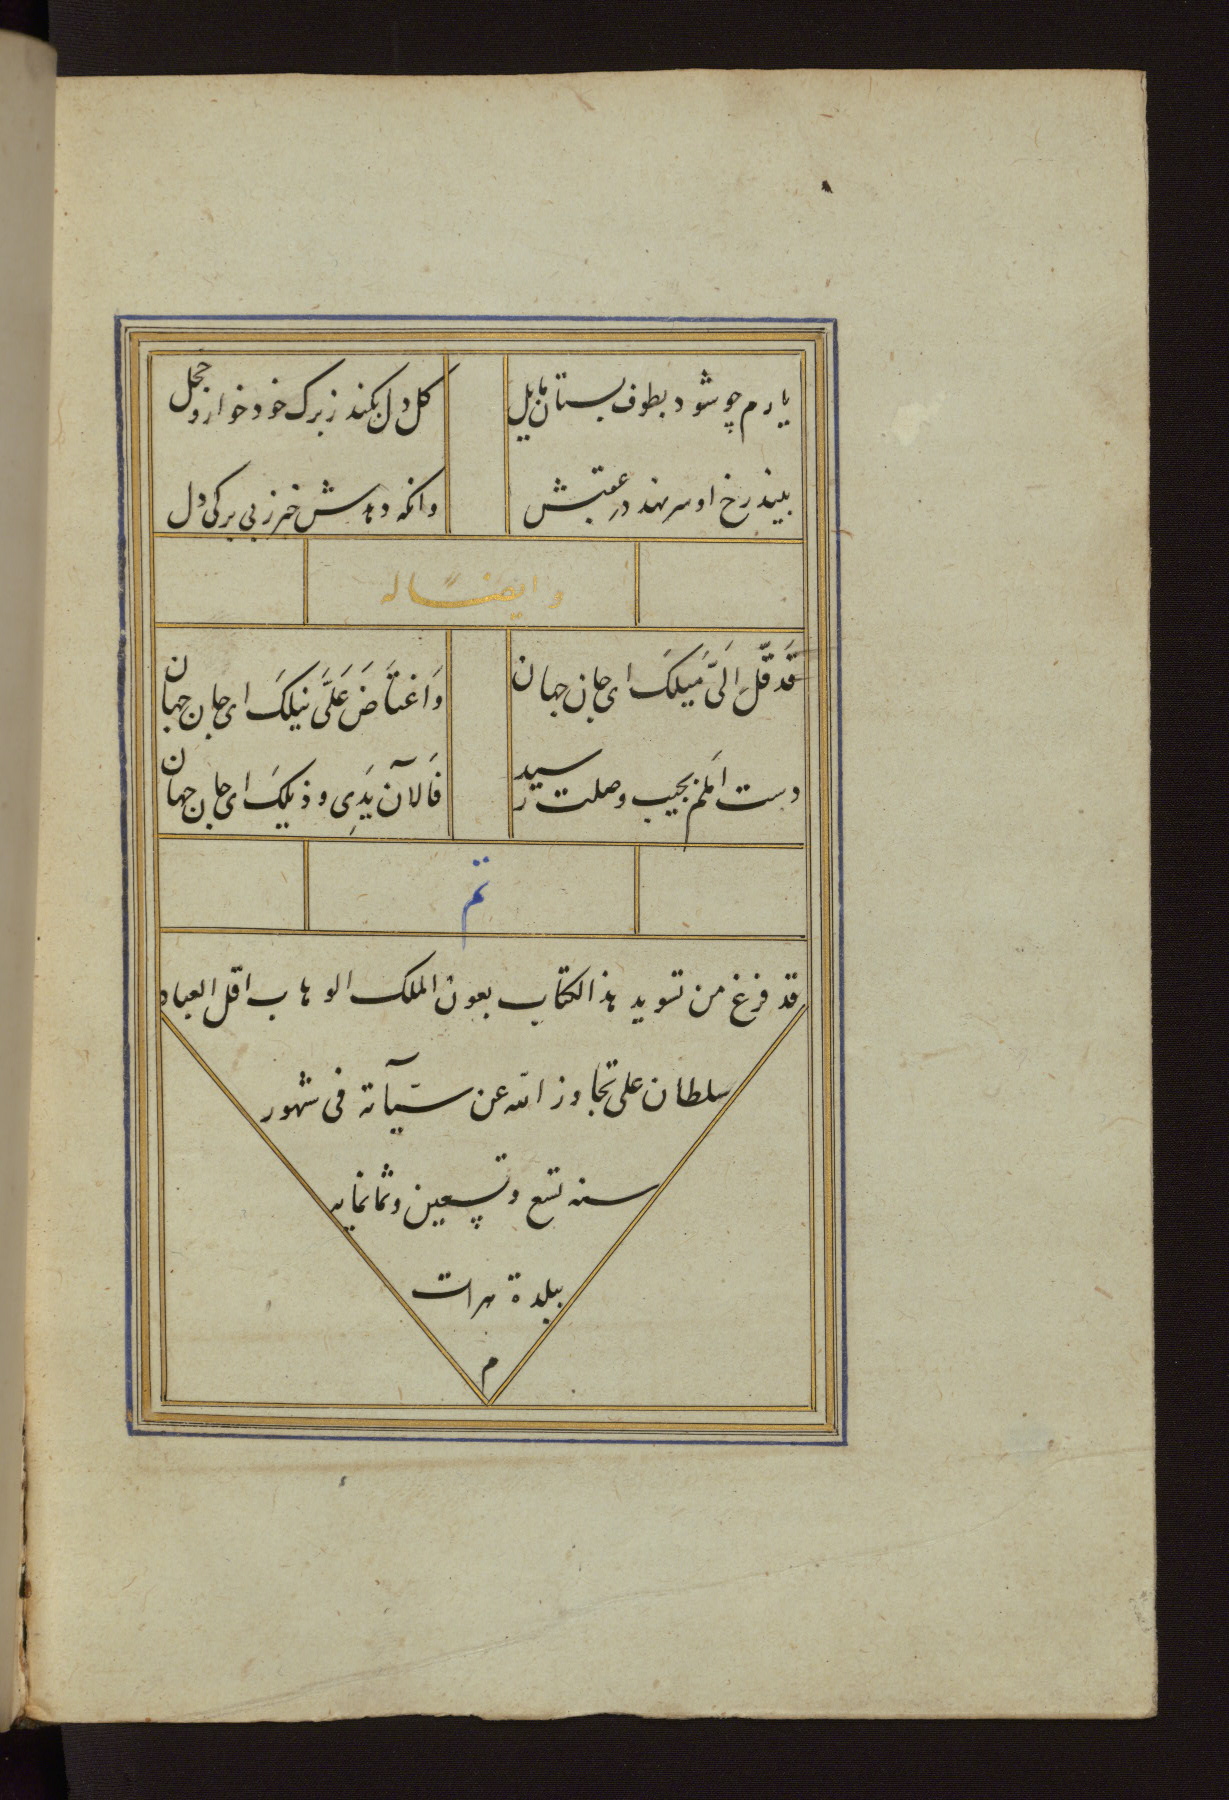 یارم چو شود بطوف بستان مایل گل دل بکند ز برک خود خوار و خجل
بیند رخ او سر نهد در عقبش وانکه دهدش خبر ز بی برکی دل
وایضًا له
قَدْ قَلَّ اِلَیَّ مَیلکَ ای جان جهان وَاعْتَاضَ عَلَیَّ نیلکَ ای جان جهان
دست املم بجیب وصلت رسید فَالآن یَدِی و ذیلکَ ای جان جهان
تم
قد فرغ من تسوید هذ الکتاب بعون الملک الوهاب اقل العباد
سلطان علی تجاوز الله عن سیّآته فی شهور
سنه تسع وتسعین وثمانمایه
ببلدة هرات
م